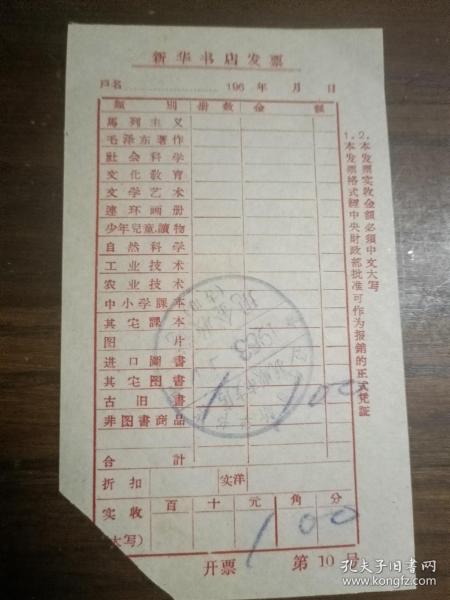 新华书店发票
戶名 196 年 月 日
類 別 册数 金 額
馬列主义
毛泽东著作
社会科学
文化敎育
文学艺术
連环画册
少年兒童讀物
自然科学
工业技术
农业技术
中小学課本
其宅課本
图片
进口圖書
其宅图書 1 1 00
古旧書
非图書商品
合計
折扣 实洋
实收 百 十 元 角 分
(大写) 1 00
开票 第 10 号
1. 本发票格式經中央財政部批准可作为报銷的正式凭證
2. 本发票实收金額必須中文大写
1963
孔夫子旧书网
KONGFZ.COM